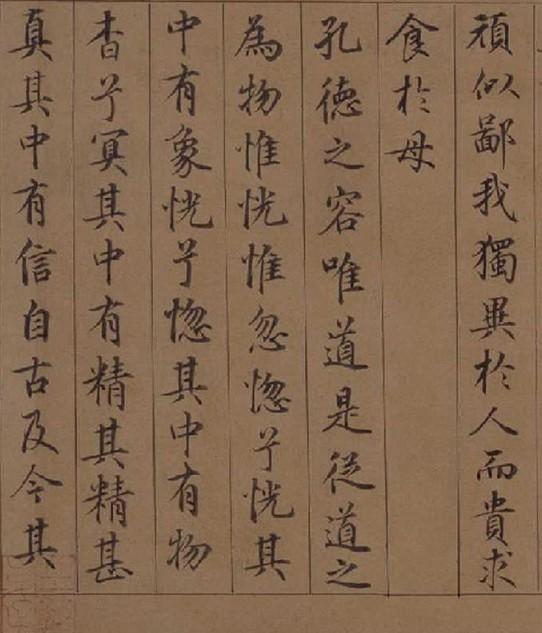 頑似鄙我獨異於人而貴求
食於母
孔徳之容唯道是從道之
為物惟恍惟忽惚兮恍其
中有象恍兮惚其中有物
杳兮冥其中有精其精甚
真其中有信自古及今其